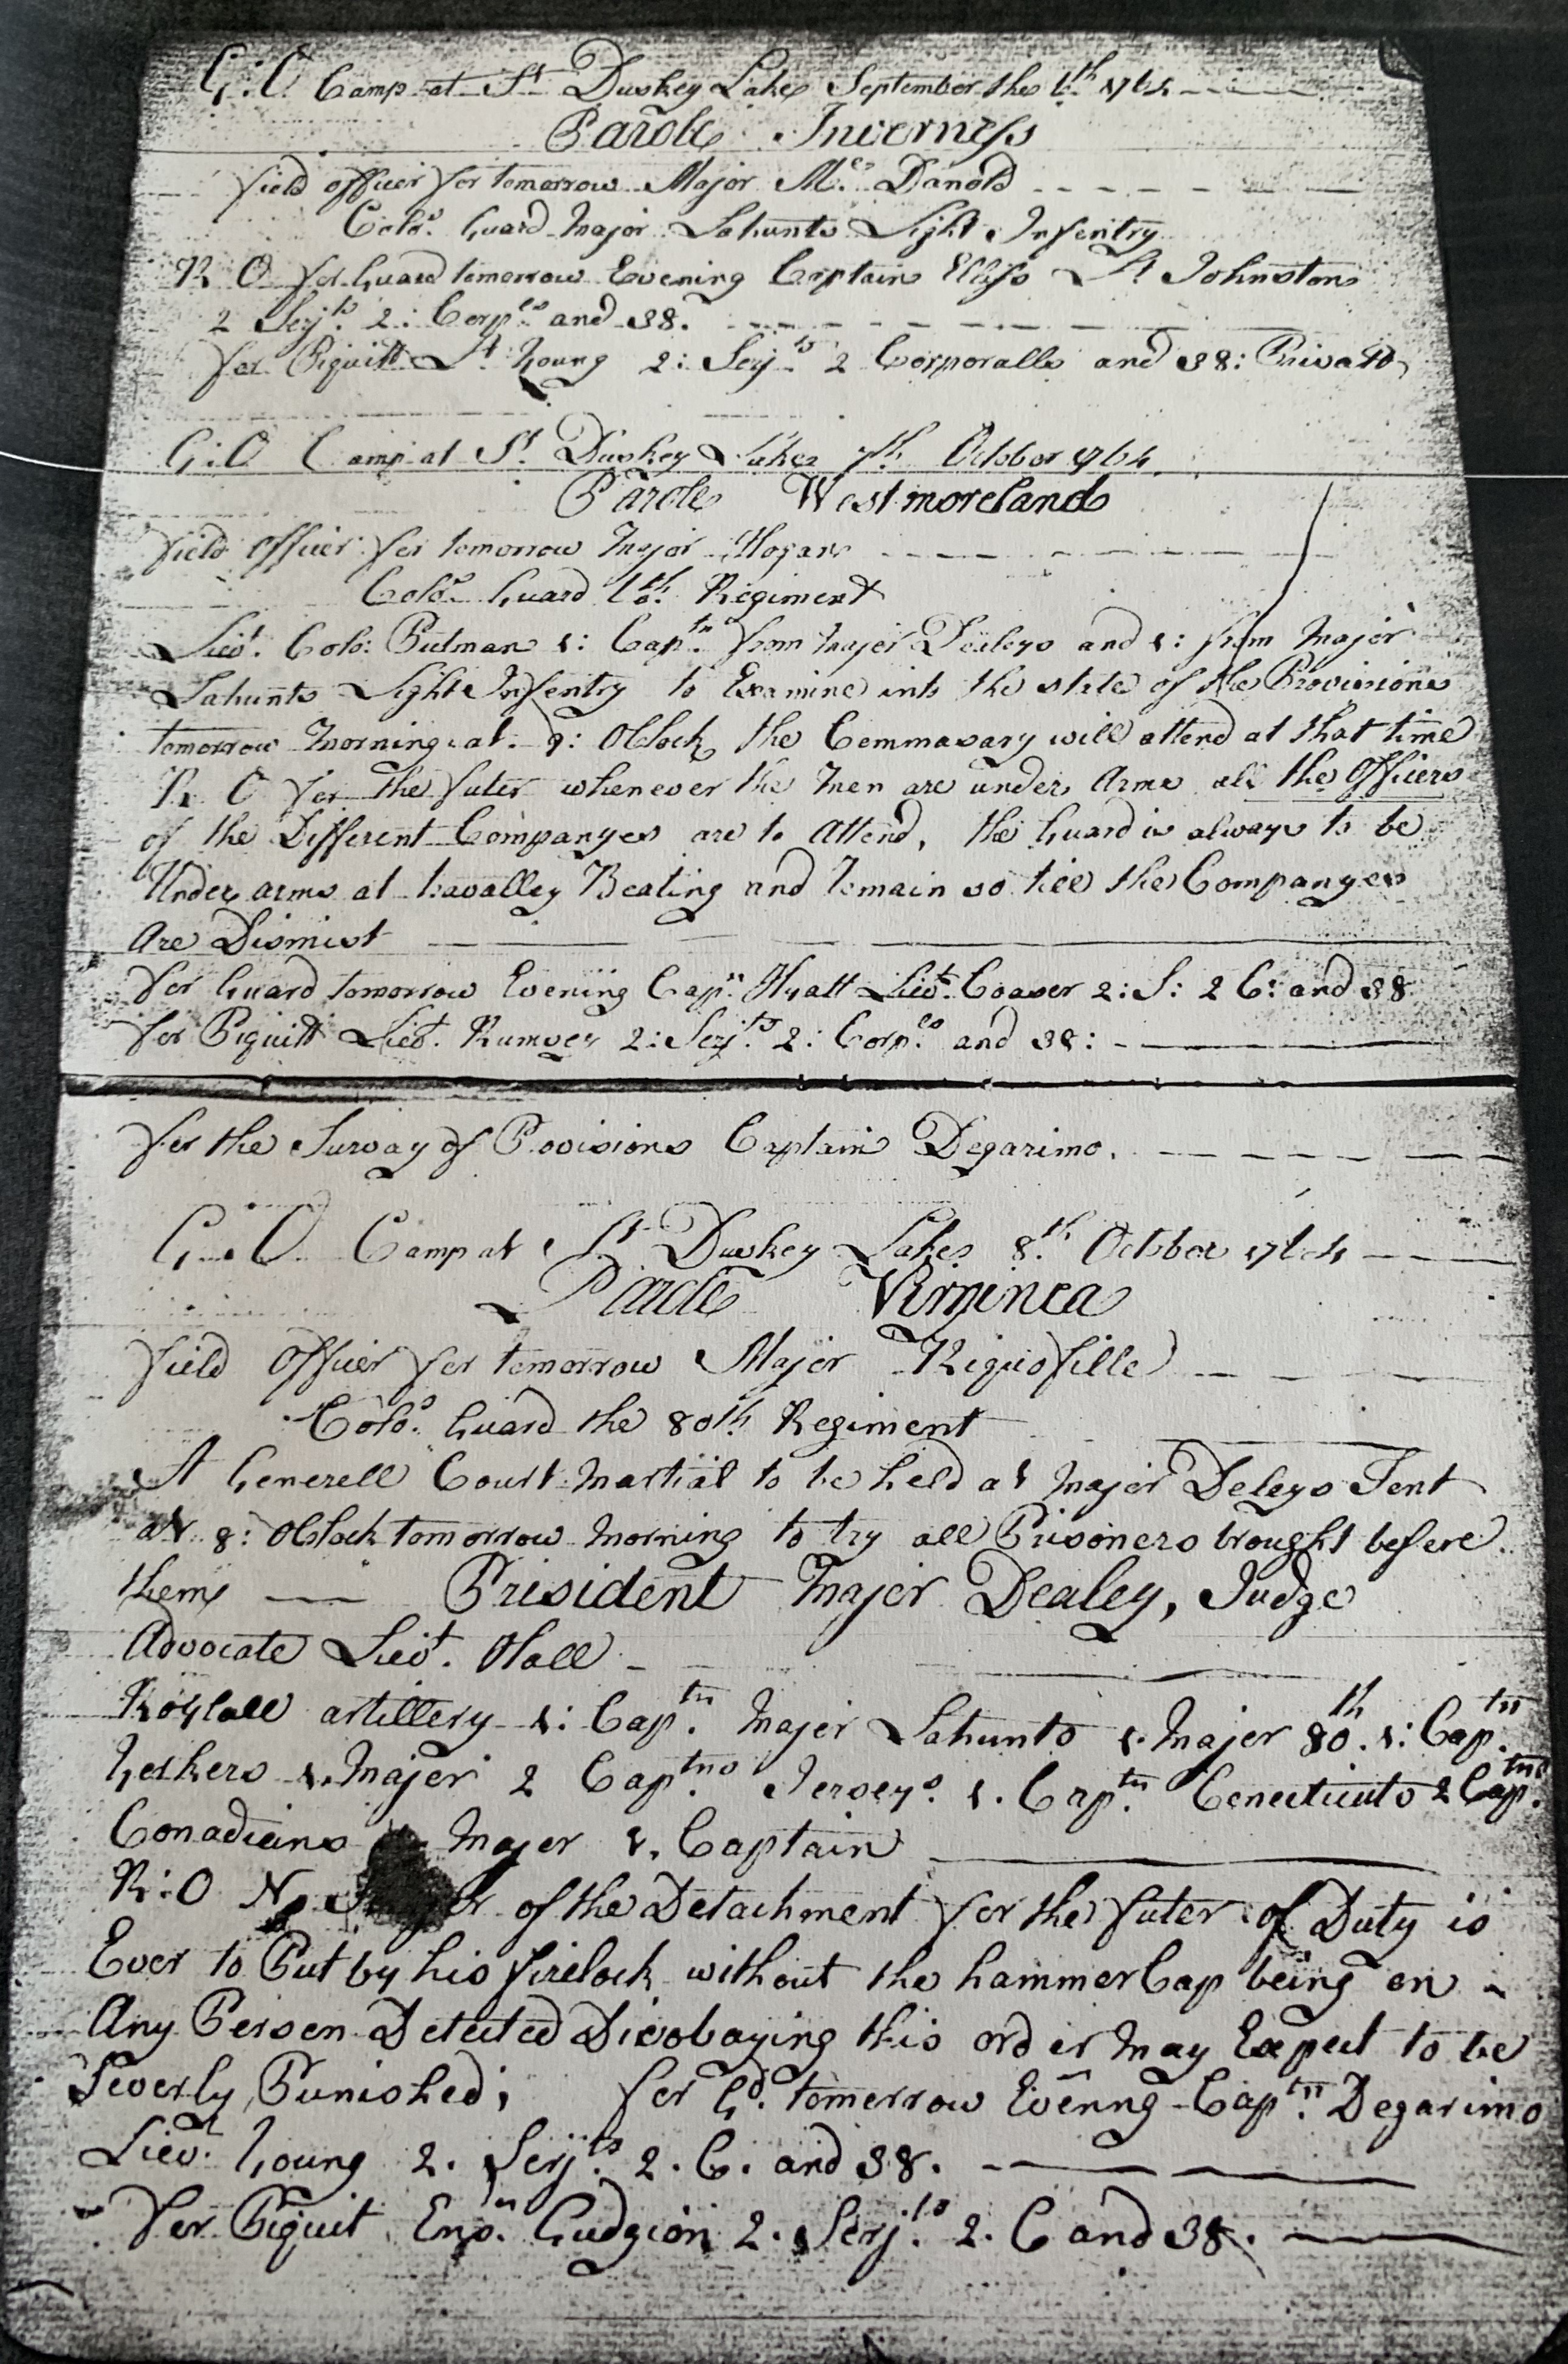 G:O Camp at St Duskey Lake September the 6th 1764
Parole Inverness
field officer for tomorrow Major Mc Danold
Colo.s Guard Major Lahunts Light Infentry
R O for Guard tomorrow Evening Captain Ellis Lt Johnston
2 Serjts 2: Corpls and 38.
for Piquitt Lt Young 2: Serjts 2 Corporalls and 38: Privats
G:O Camp at St Duskey Lakes 7th October 1764
Parole Westmoreland
field Officer for tomorrow Major Hogan
Colo.s Guard Regiment
Liet. Colo: Putman 1: Captn from Major Dealeys and 1: from Major
Lahunts Light Infentry to Examine into the state of the Provisions
tomorrow Morning at 9: OClock the Commasary will attend at that time
R O for the futer whenever the Men are under Arms all the Officers
of the Different Companyes are to Attend, the Guard is always to be
Under arms at Ravalley Beating and Remain so till the Companyes
Are Dismist
for Guard tomorrow Evening Capn Hyatt Liet. Coaser 2: S: 2 C: and 38
for Piquitt Liet. Rumsey 2: Serjts 2: Corpls and 38:
for the Survay of Provisions Captain Degarimo.
G:O Camp at St Duskey Lakes 8th October 1764
Parole Virginea
field Officer for tomorrow Major
Colo.s Guard the 80th Regiment
A Generell Court Martial to be held at Major Deleys Tent
at 8: OClock tomorrow Morning to try all Prisoners brought before
them President Majer Dealey, Judge
Advocate Liet. Hall
Royall artillery 1: Captn Majer Lahunts 1. Majer 80th 1: Captn
Yorkers 1. Majer 2 Captns Jerseys 1. Captn Conecticuts 2 Captns
Conadians Majer 1. Captain
R:O No of the Detachment for the futer of Duty is
Ever to Put by his firelock without the hammer Cap being on
Any Person Detected Disobaying this order may Expect to be
Severly Punished; for Gd. tomerrow Evenng Captn Degarimo
Liev.t Young 2. Serjts 2. C. and 38.
for Piquit Ensn Gudgion 2. Serjts 2. C and 38.